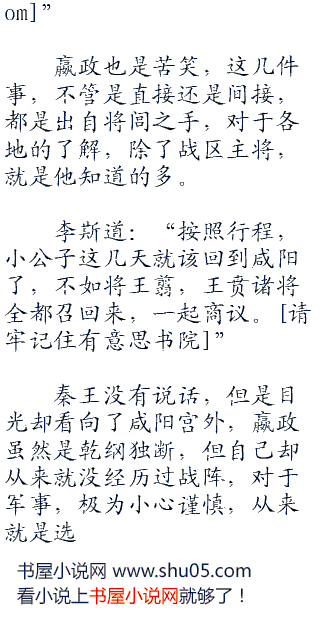 om]”
嬴政也是苦笑，这几件
事，不管是直接还是间接，
都是出自将闾之手，对于各
地的了解，除了战区主将，
就是他知道的多。
李斯道：“按照行程，
小公子这几天就该回到咸阳
了，不如将王翦，王贲诸将
全都召回来，一起商议。[请
牢记住有意思书院]”
秦王没有说话，但是目
光却看向了咸阳宫外，嬴政
虽然是乾纲独断，但自己却
从来就没经历过战阵，对于
军事，极为小心谨慎，从来
就是选
书屋小说网 www.shu05.com
看小说上书屋小说网就够了！